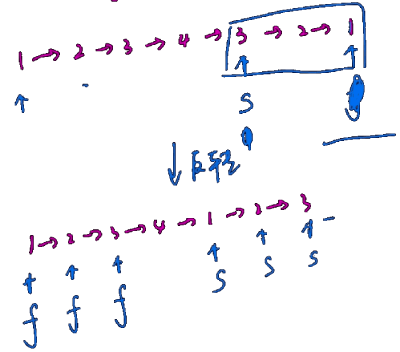 1 → 2 → 3 → 4 → 3 → 2 → 1
S
↓ 反转
1 → 2 → 3 → 4 → 1 → 2 → 3
f f f S S S